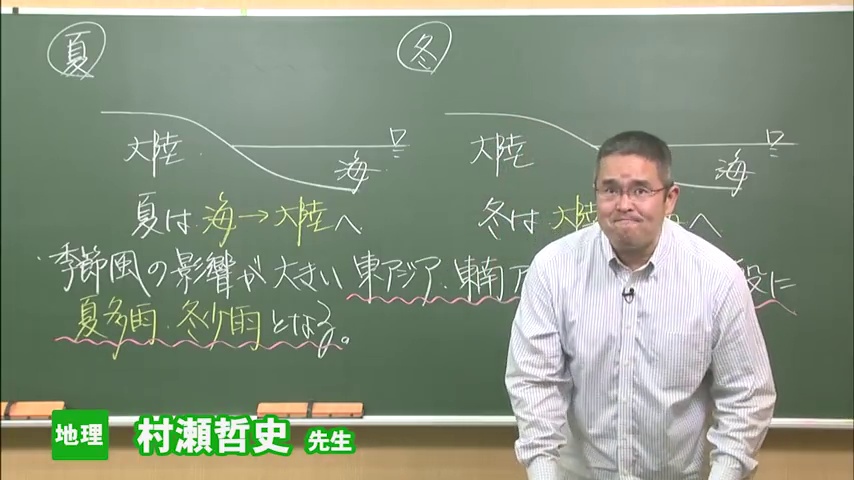 夏
冬
大陸
海
大陸
海
夏は 海→大陸へ
冬は 大陸 へ
・季節風の影響が大きい東アジア・東南ア
に
夏多雨・冬少雨となる。
地理 村瀬哲史 先生